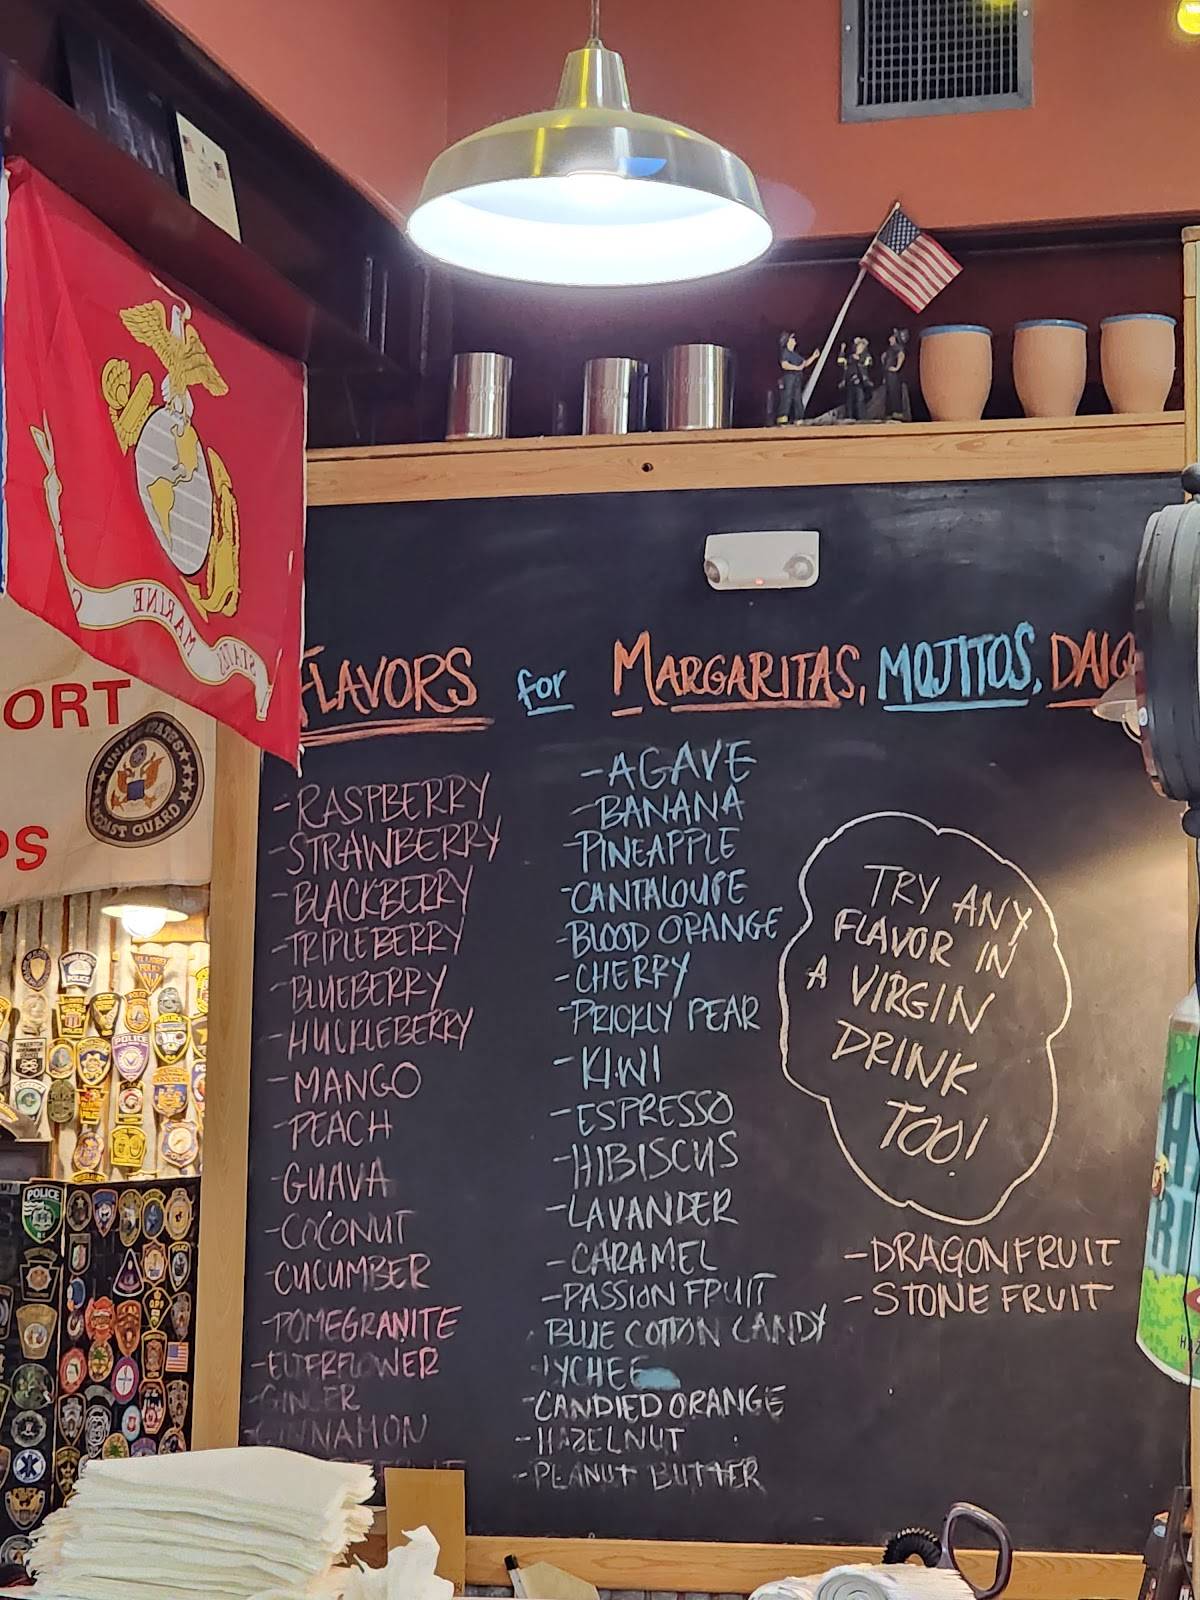 FLAVORS for MARGARITAS, MOJITOS, DAIQ
-RASPBERRY
-STRAWBERRY
-BLACKBERRY
-TRIPLEBERRY
-BLUEBERRY
-HUCKLEBERRY
-MANGO
-PEACH
-GUAVA
-COCONUT
-CUCUMBER
-POMEGRANITE
-ELDERFLOWER
-GINGER
-CINNAMON
-AGAVE
-BANANA
-PINEAPPLE
-CANTALOUPE
-BLOOD ORANGE
-CHERRY
-PRICKLY PEAR
-KIWI
-ESPRESSO
-HIBISCUS
-LAVANDER
-CARAMEL
-PASSION FRUIT
BLUE COTTON CANDY
-LYCHEE
-CANDIED ORANGE
-HAZELNUT
-PEANUT BUTTER
TRY ANY
FLAVOR IN
A VIRGIN
DRINK
TOO!
-DRAGONFRUIT
-STONE FRUIT
STATES MARINE C
ORT
PS
UNITED STATES
COAST GUARD
POLICE
POLICE
POLICE